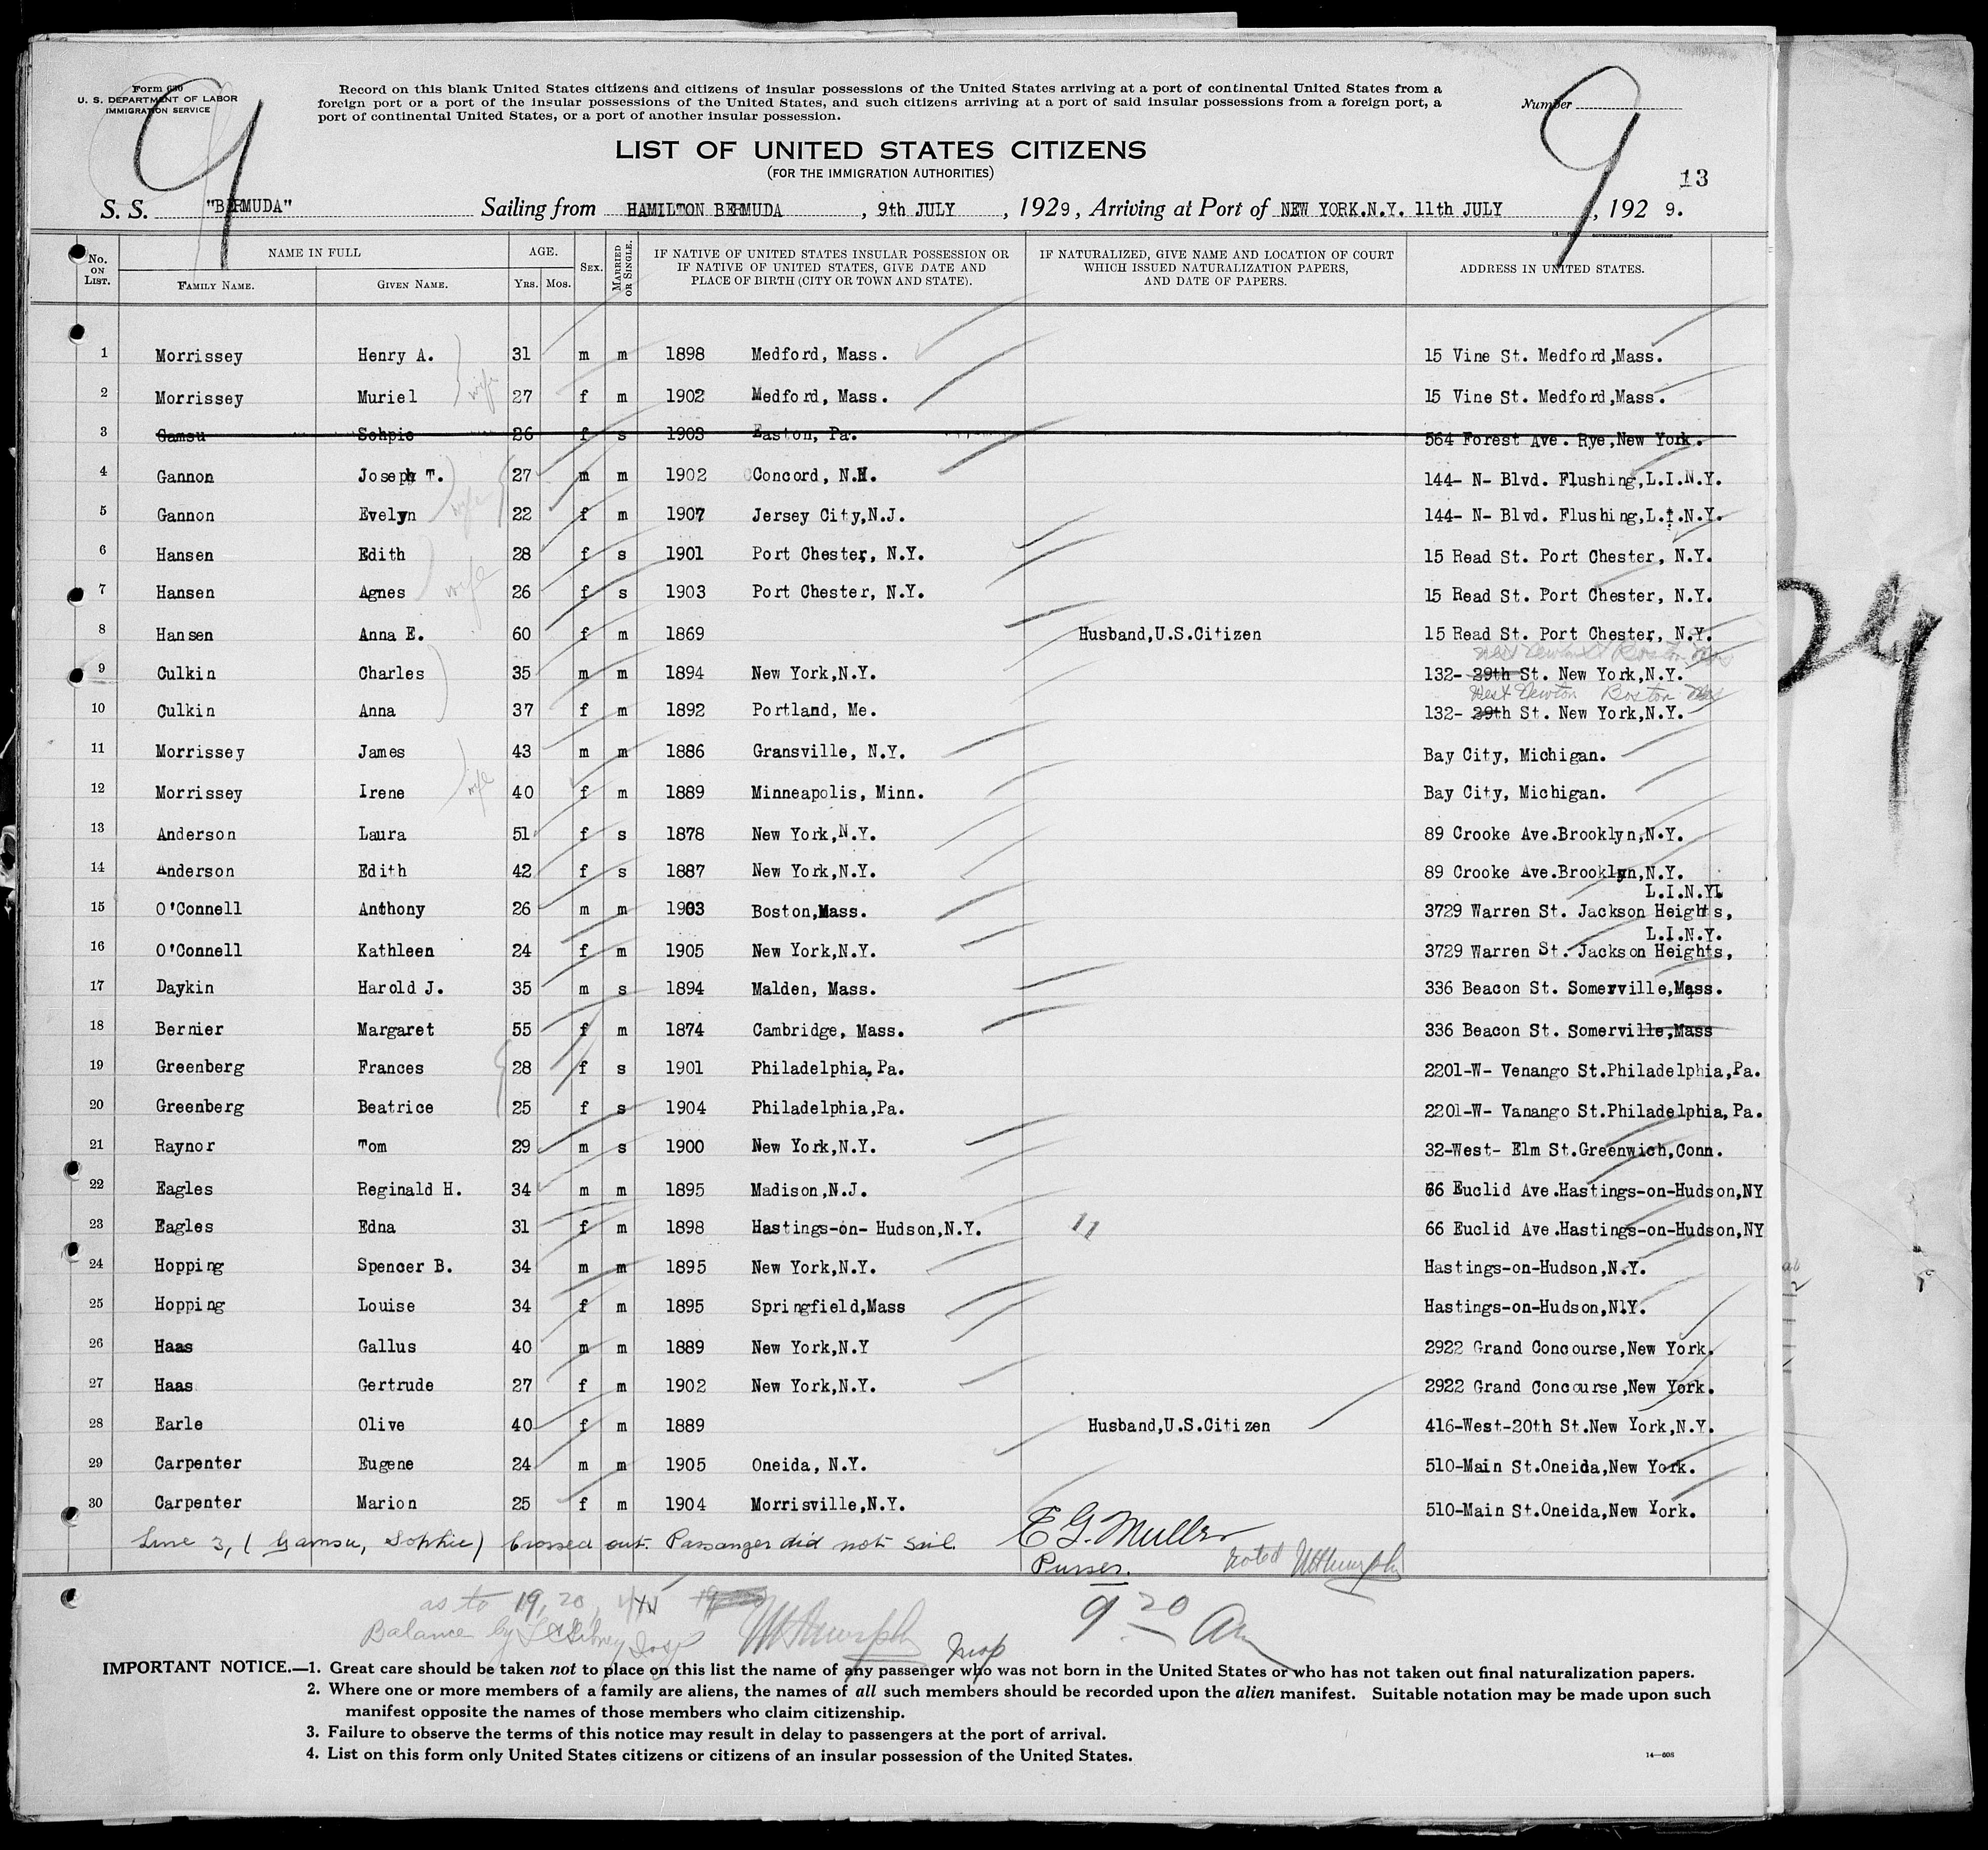 Form 630
U. S. DEPARTMENT OF LABOR
IMMIGRATION SERVICE
Record on this blank United States citizens and citizens of insular possessions of the United States arriving at a port of continental United States from a
foreign port or a port of the insular possessions of the United States, and such citizens arriving at a port of said insular possessions from a foreign port, a
port of continental United States, or a port of another insular possession.
Number
9
9
LIST OF UNITED STATES CITIZENS
(FOR THE IMMIGRATION AUTHORITIES)
13
S. S. "BERMUDA" Sailing from HAMILTON BERMUDA, 9th JULY, 1929, Arriving at Port of NEW YORK.N.Y. 11th JULY, 192 9.
No. ON LIST. NAME IN FULL FAMILY NAME. GIVEN NAME. AGE. Yrs. Mos. SEX. MARRIED OR SINGLE. IF NATIVE OF UNITED STATES INSULAR POSSESSION OR IF NATIVE OF UNITED STATES, GIVE DATE AND PLACE OF BIRTH (CITY OR TOWN AND STATE). IF NATURALIZED, GIVE NAME AND LOCATION OF COURT WHICH ISSUED NATURALIZATION PAPERS, AND DATE OF PAPERS. ADDRESS IN UNITED STATES.
1 Morrissey Henry A. 31 m m 1898 Medford, Mass. 15 Vine St. Medford,Mass.
2 Morrissey Muriel wife 27 f m 1902 Medford, Mass. 15 Vine St. Medford,Mass.
3 Gamsu Sohpie 26 f s 1903 Easton, Pa. 564 Forest Ave. Rye,New York.
4 Gannon Joseph T. 27 m m 1902 Concord, N.H. 144- N- Blvd. Flushing,L.I.N.Y.
5 Gannon Evelyn wife 22 f m 1907 Jersey City,N.J. 144- N- Blvd. Flushing,L.I.N.Y.
6 Hansen Edith 28 f s 1901 Port Chester, N.Y. 15 Read St. Port Chester, N.Y.
7 Hansen Agnes wife 26 f s 1903 Port Chester, N.Y. 15 Read St. Port Chester, N.Y.
8 Hansen Anna E. 60 f m 1869 Husband,U.S.Citizen 15 Read St. Port Chester, N.Y.
West Newton Boston
9 Culkin Charles 35 m m 1894 New York,N.Y. 132- 29th St. New York,N.Y.
West Newton Boston
10 Culkin Anna 37 f m 1892 Portland, Me. 132- 29th St. New York,N.Y.
11 Morrissey James 43 m m 1886 Gransville, N.Y. Bay City, Michigan.
12 Morrissey Irene wife 40 f m 1889 Minneapolis, Minn. Bay City, Michigan.
13 Anderson Laura 51 f s 1878 New York,N.Y. 89 Crooke Ave.Brooklyn,N.Y.
14 Anderson Edith 42 f s 1887 New York,N.Y. 89 Crooke Ave.Brooklyn,N.Y.
L.I.N.Y.
15 O'Connell Anthony 26 m m 1903 Boston,Mass. 3729 Warren St. Jackson Heights,
L.I.N.Y.
16 O'Connell Kathleen 24 f m 1905 New York,N.Y. 3729 Warren St. Jackson Heights,
17 Daykin Harold J. 35 m s 1894 Malden, Mass. 336 Beacon St. Somerville,Mass.
18 Bernier Margaret 55 f m 1874 Cambridge, Mass. 336 Beacon St. Somerville,Mass
19 Greenberg Frances 28 f s 1901 Philadelphia,Pa. 2201-W- Venango St.Philadelphia,Pa.
20 Greenberg Beatrice 25 f s 1904 Philadelphia,Pa. 2201-W- Vanango St.Philadelphia,Pa.
21 Raynor Tom 29 m s 1900 New York,N.Y. 32-West- Elm St.Greenwich,Conn.
22 Eagles Reginald H. 34 m m 1895 Madison,N.J. 66 Euclid Ave.Hastings-on-Hudson,NY
23 Eagles Edna 31 f m 1898 Hastings-on- Hudson,N.Y. 11 66 Euclid Ave.Hastings-on-Hudson,NY
24 Hopping Spencer B. 34 m m 1895 New York,N.Y. Hastings-on-Hudson,N.Y.
25 Hopping Louise 34 f m 1895 Springfield,Mass Hastings-on-Hudson,N.Y.
26 Haas Gallus 40 m m 1889 New York,N.Y 2922 Grand Concourse,New York.
27 Haas Gertrude 27 f m 1902 New York,N.Y. 2922 Grand Concourse,New York.
28 Earle Olive 40 f m 1889 Husband,U.S.Citizen 416-West-20th St.New York,N.Y.
29 Carpenter Eugene 24 m m 1905 Oneida, N.Y. 510-Main St.Oneida,New York.
30 Carpenter Marion 25 f m 1904 Morrisville,N.Y. 510-Main St.Oneida,New York.
Line 3, ( Gamsu, Sophie) Crossed out. Passanger did not sail. E G. Muller
Purser. noted
as to 19, 20,
Balance by Insp
Insp
9 20 Am
24
IMPORTANT NOTICE.—1. Great care should be taken not to place on this list the name of any passenger who was not born in the United States or who has not taken out final naturalization papers.
2. Where one or more members of a family are aliens, the names of all such members should be recorded upon the alien manifest. Suitable notation may be made upon such
manifest opposite the names of those members who claim citizenship.
3. Failure to observe the terms of this notice may result in delay to passengers at the port of arrival.
4. List on this form only United States citizens or citizens of an insular possession of the United States.
14—608